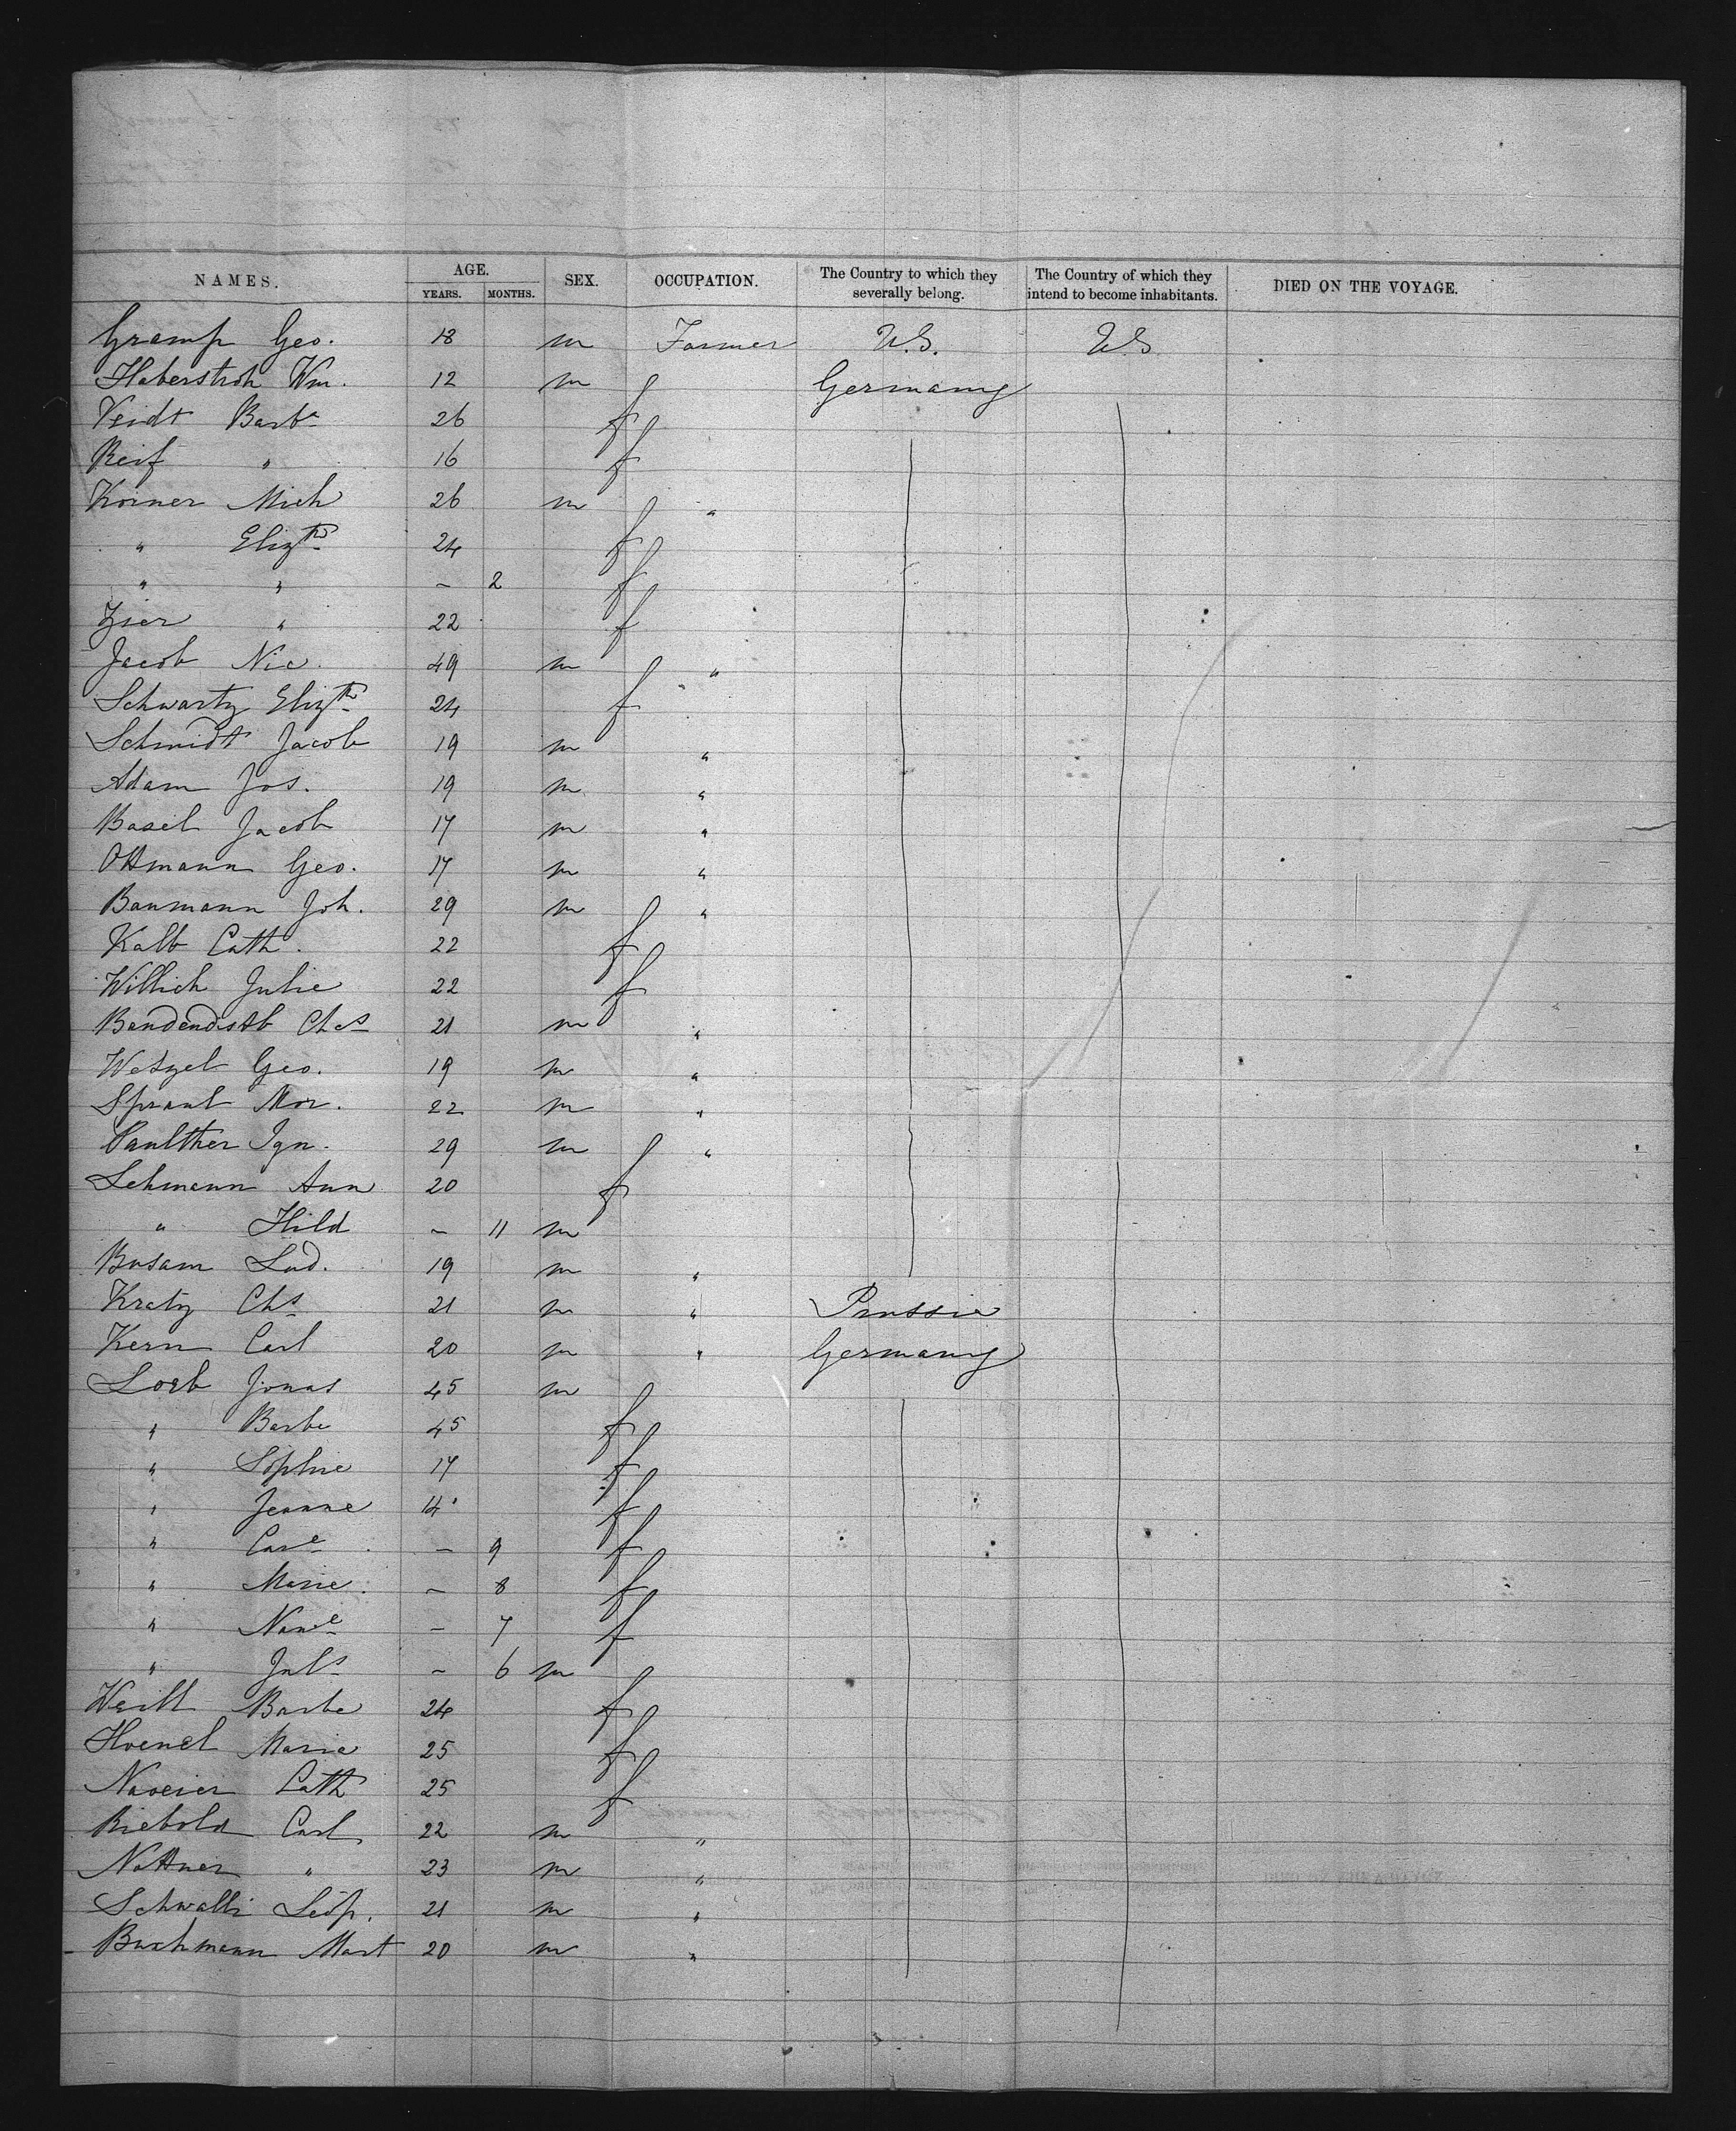 NAMES. AGE. SEX. OCCUPATION. The Country to which they severally belong. The Country of which they intend to become inhabitants. DIED ON THE VOYAGE.
YEARS. MONTHS.
Gramp Geo. 18 m Farmer U.S. U.S
Haberstroh Wm. 12 m Germany
Veidt Barbe 26 f
Reif " 16 f
Korner Mich 26 m "
" Elizth 24 f
" " – 2 f
Zier " 22 f
Jacob Nic. 49 m "
Schwartz Elizth 24 f
Schmidt Jacob 19 m "
Adam Jos. 19 m "
Basel Jacob 17 m "
Ottmann Geo. 17 m "
Baumann Joh. 29 m "
Kalb Cath. 22 f
Willich Julie 22 f
Chas 21 m "
Wetzel Geo. 19 m "
Mor. 22 m "
Paulther Ign. 29 m "
Lehmann Ann 20 f
" Hild – 11 m
Busam Lud. 19 m "
Kratz Chs 21 m " Prussia
Kern Carl 20 m " Germany
Loeb Jonas 45 m
" Barbe 45 f
" Sophie 17 f
" Jeanne 14 f
" Care – 9 f
" Marie. – 8 f
" Nane – 7 f
" Juls – 6 m
Weill Barbe 24 f
Hoenel Marie 25 f
Cath 25 f
Riebold Carl 22 m "
Nottner " 23 m "
Schwalli Leop. 21 m "
Buchmann Mart 20 m "